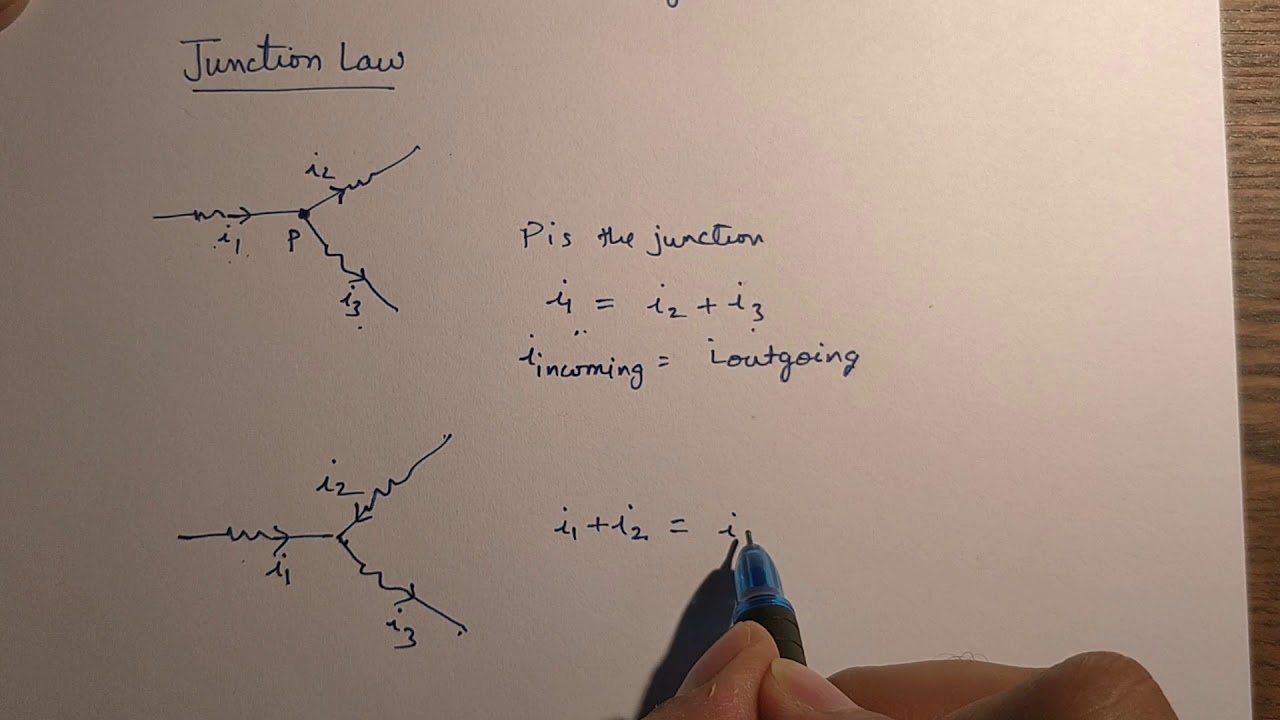 Junction Law
i2
i1
P
i3
P is the junction
i1 = i2 + i3
iincoming = ioutgoing
i2
i1
i3
i1 + i2 = i